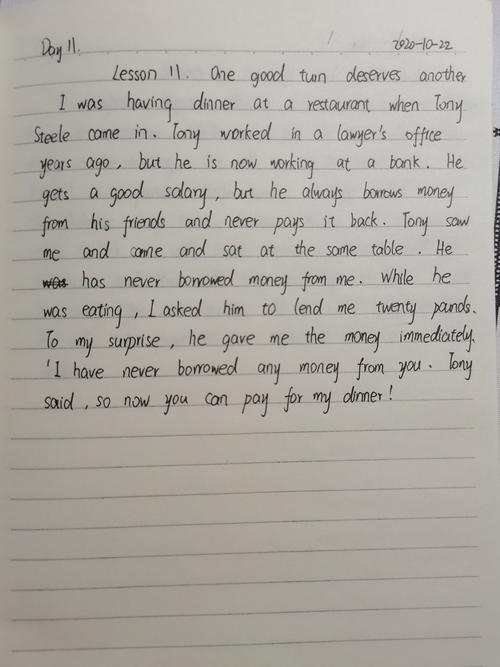 Day 11.
2020-10-22
Lesson 11. One good turn deserves another
I was having dinner at a restaurant when Tony
Steele came in. Tony worked in a lawyer's office
years ago, but he is now working at a bank. He
gets a good salary, but he always borrows money
from his friends and never pays it back. Tony saw
me and came and sat at the same table. He
was has never borrowed money from me. While he
was eating, I asked him to lend me twenty pounds.
To my surprise, he gave me the money immediately.
'I have never borrowed any money from you. Tony
said, so now you can pay for my dinner!